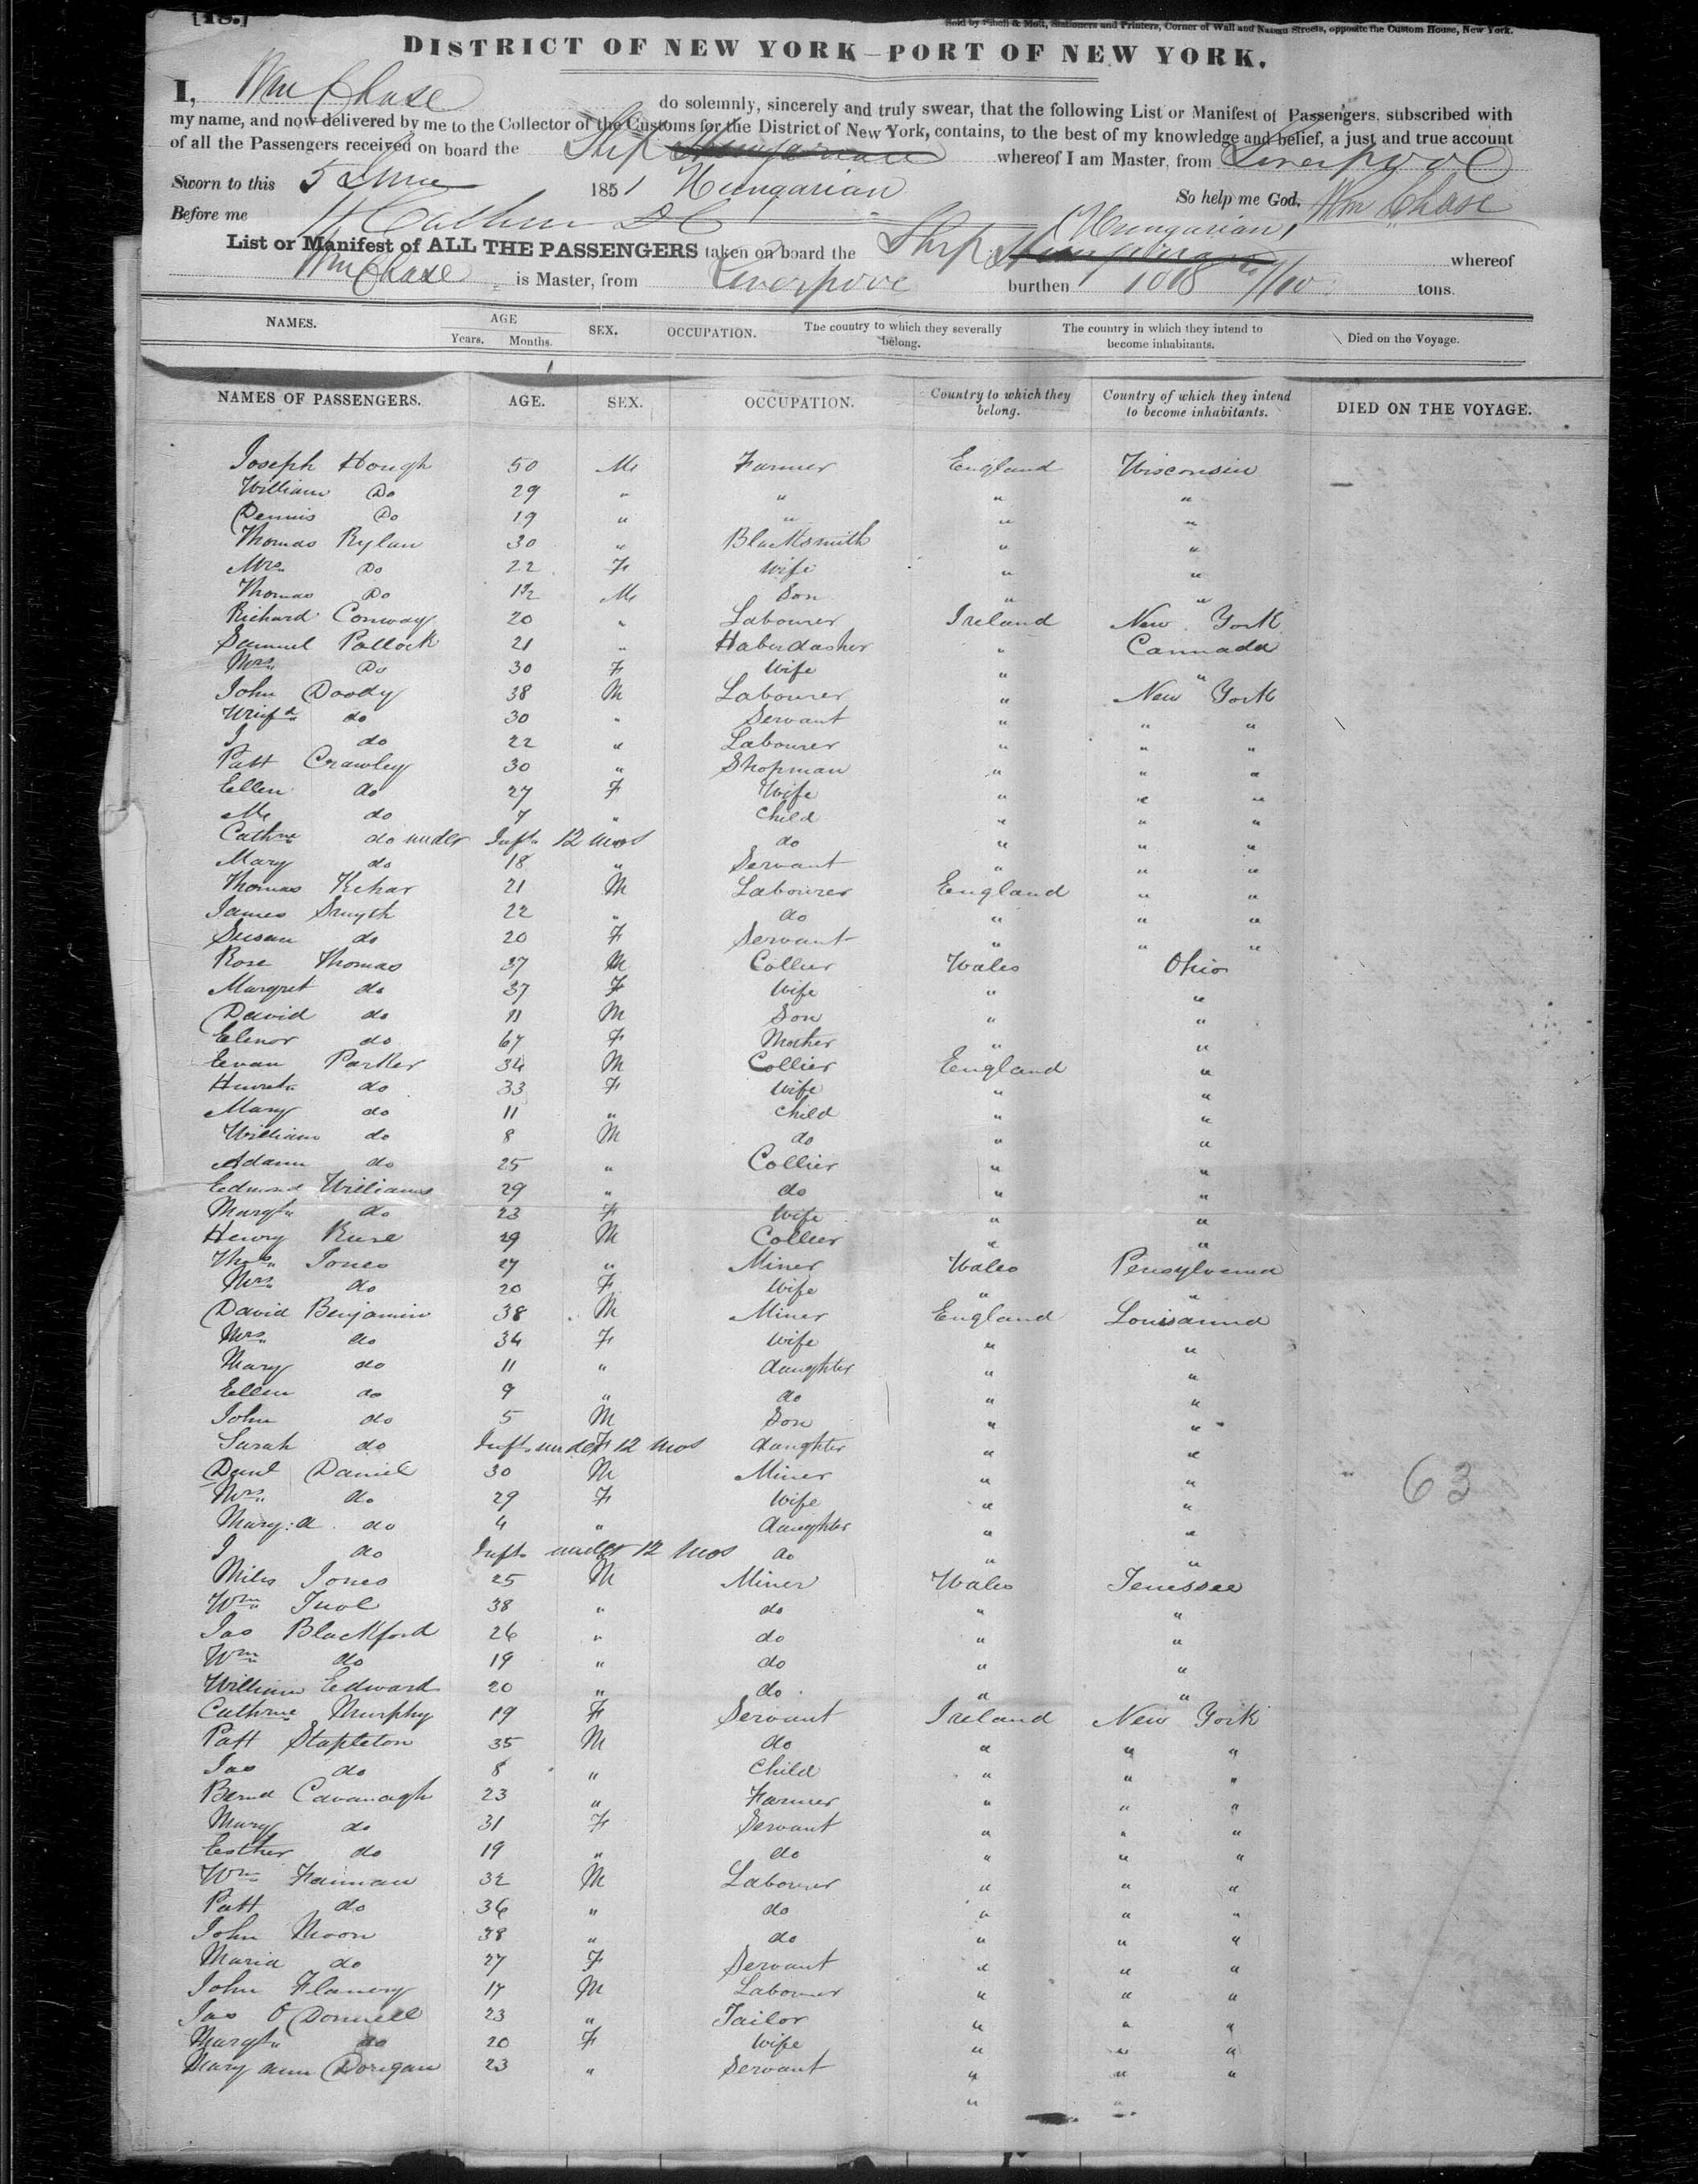 [18.]
Sold by Sibell & Mott, Stationers and Printers, Corner of Wall and Nassau Streets, opposite the Custom House, New York.
DISTRICT OF NEW YORK—PORT OF NEW YORK.
I, Wm Chase do solemnly, sincerely and truly swear, that the following List or Manifest of Passengers, subscribed with
my name, and now delivered by me to the Collector of the Customs for the District of New York, contains, to the best of my knowledge and belief, a just and true account
of all the Passengers received on board the Ship whereof I am Master, from Liverpool
Sworn to this 5 June 1851 Hungarian So help me God, Wm Chase
Before me
List or Manifest of ALL THE PASSENGERS taken on board the Ship Hungarian, whereof
Wm Chase is Master, from Liverpool burthen tons.
NAMES. AGE Years. Months. SEX. OCCUPATION. The country to which they severally belong. The country in which they intend to become inhabitants. Died on the Voyage.
NAMES OF PASSENGERS. AGE. SEX. OCCUPATION. Country to which they belong. Country of which they intend to become inhabitants. DIED ON THE VOYAGE.
Joseph Hough 50 M Farmer England Wisconsin
William Do 29 " " " "
Dennis Do 19 " " " "
Thomas Rylan 30 " Blacksmith " "
Mrs Do 22 F Wife " "
Thomas Do 1½ M Son " "
Richard Conway 20 " Labourer Ireland New York
Samuel Pollock 21 " Haberdasher " Cannada
Mrs Do 30 F Wife " "
John Doody 38 M Labourer " New York
do 30 " Servant " " "
J do 22 " Labourer " " "
Patt Crawley 30 " Shopman " " "
Ellen do 27 F Wife " " "
M do 7 " Child " " "
Cathne do under Inft 12 mos do " " "
Mary do 18 " Servant " " "
Thomas Kehar 21 M Labourer England " "
James Smyth 22 " do " " "
Susan do 20 F Servant " " "
Rose Thomas 37 M Collier Wales Ohio
Margret do 37 F Wife " "
David do 11 M Son " "
Elenor do 67 F Mother " "
Evan Parker 34 M Collier England "
do 33 F Wife " "
Mary do 11 " Child " "
William do 8 M do " "
Adam do 25 " Collier " "
Edmond Williams 29 " do " "
Margt do 23 F Wife " "
Henry Ruse 29 M Collier " "
Thos Jones 27 " Miner Wales Pensylvania
Mrs do 20 F Wife " "
David Benjamin 38 M Miner England Louisanna
Mrs do 34 F Wife " "
Mary do 11 " daughter " "
Ellen do 9 " do " "
John do 5 M Son " "
Sarah do Inft under F 12 mos daughter " "
Danl Daniel 30 M Miner " " 63
Mrs do 29 F Wife " "
Mary: A do 4 " daughter " "
J do Inft under 12 mos do " "
Miles Jones 25 M Miner Wales Tenessee
Wm 38 " do " "
Jas Blackford 26 " do " "
Wm do 19 " do " "
William Edward 20 " do " "
Cathrne Murphy 19 F Servant Ireland New York
Patt Stapleton 35 M do " " "
Jas do 8 " Child " " "
Bernd Cavanagh 23 " Farmer " " "
Mary do 31 F Servant " " "
Esther do 19 " do " " "
Wm Fannan 32 M Labourer " " "
Patt do 36 " do " " "
John Moon 38 " do " " "
Maria do 27 F Servant " " "
John Flanery 17 M Labourer " " "
Jas O Donnell 23 " Tailor " " "
Margt do 20 F Wife " " "
Mary Ann Dorigan 23 " Servant " " "